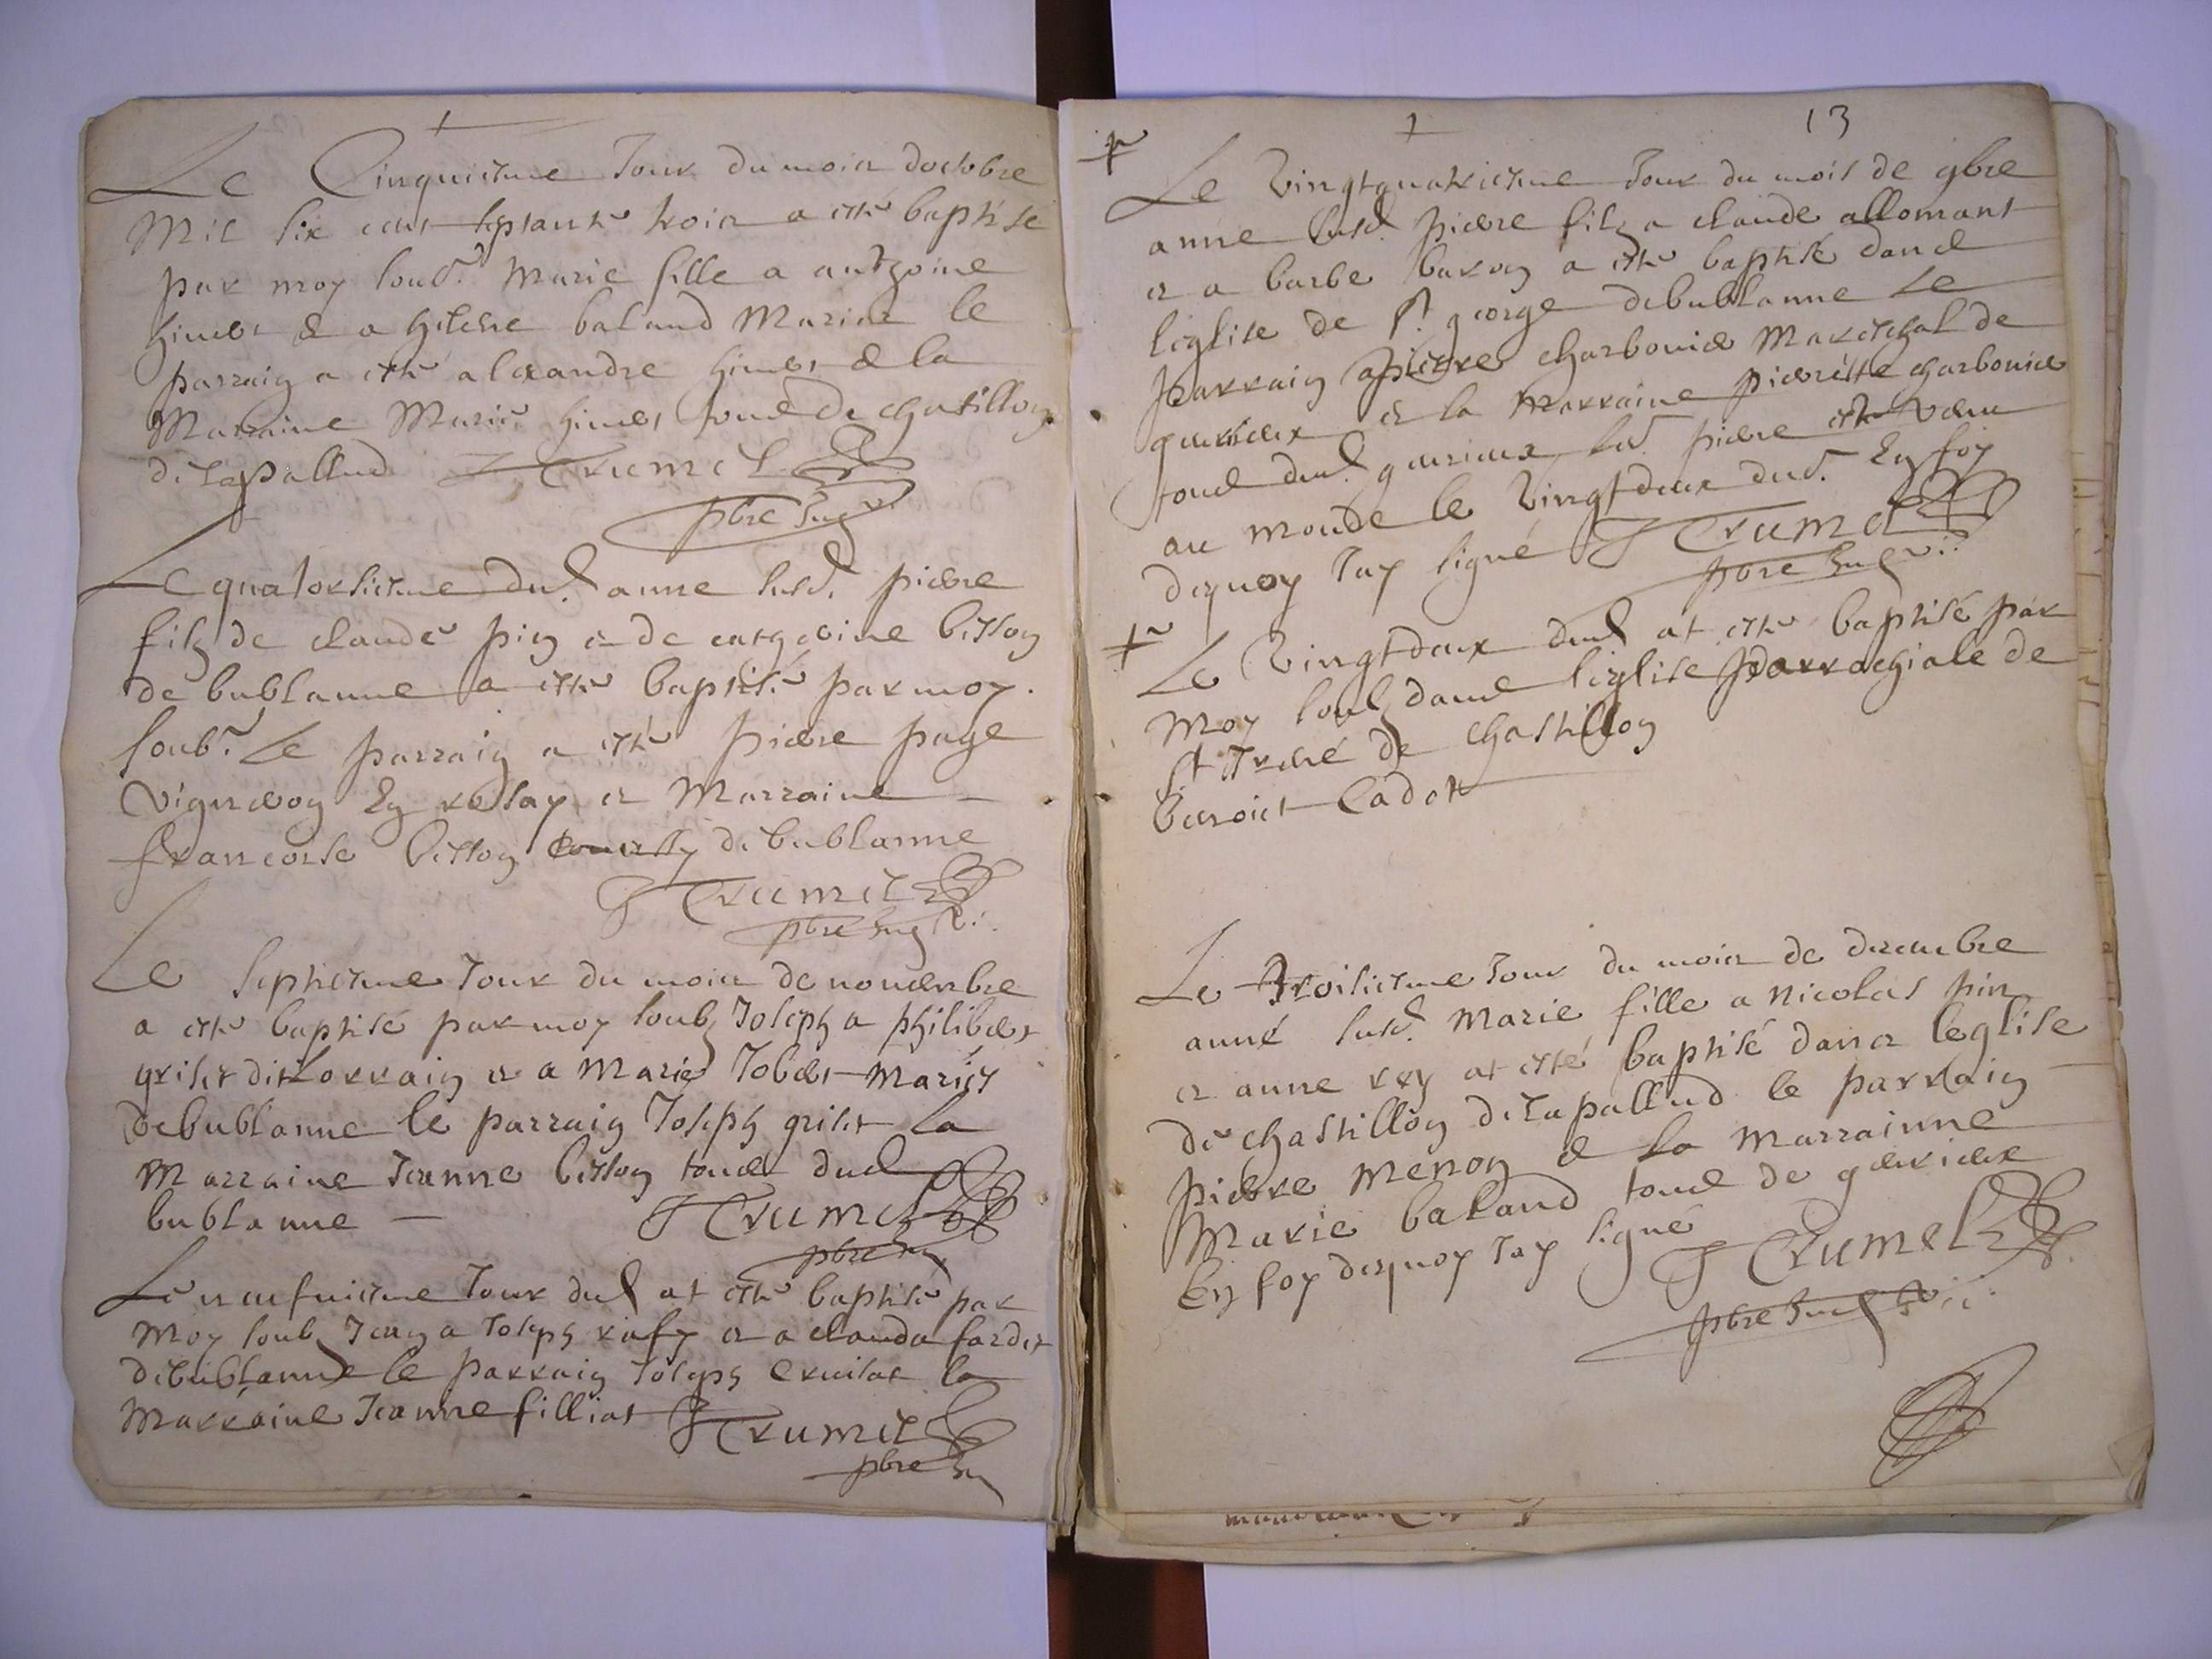 Le Cinquiesme Jour du mois doctobre
Mil six cent septante trois a esté baptisé
par moy soubs. Marie fille a anthoine
himbert & a baland Mariez le
parraig a esté alexandre himbert & la
Marraine Marie himbert tous de chatillon
de la pallud J Trumel
pbre
Le quatorsiesme dud. anne susd. pierre
filz de claude pin et de catherine bisson
de bublanne a esté baptisé par moy
soubs. Le parraig a esté pierre page
vigneron et Marraine
francoise bisson de bublanne
J Trumel
pbre
Le septiesme Jour du mois de nouembre
a esté baptisé par moy soubs Joseph a philibert
griset dit Lorraig et a Marie Jobert Mariés
de bublanne le parraig Joseph griset La
Marraine Jeanne bisson tous dud
bublanne J Trumel
pbre
Le neufuiesme Jour dud at esté baptisé par
Moy soubs Jean a Joseph et a clauda fardet
de bublanne le parraig Joseph la
Marraine Jeanne filliat J Trumel
pbre
1 13
Le Vingtquatriesme Jour du mois de 9bre
anne susd. pierre filz a claude allomant
et a barbe baron a esté baptisé dans
leglise de St george de bublanne Le
parraig a pierre charbonier Mareschal de
et la marraine pierrette charbonier
tous dud. led. pierre est venu
au monde le Vingtdeux dud. En foy
dequoy Jay signé J Trumel
pbre
Le Vingtdeux dud at esté baptisé par
Moy soubs dans leglise parrochiale de
st de chastillon
benoict Cadot
Le Troisiesme Jour du mois de decembre
anné susd. Marie fille a Nicolas pin
et anne rey at esté baptisé dans leglise
de chastillon de la pallud le parraig
pierre Menon & la Marrainne
Marie baland tous de
En foy dequoy Jay signé J Trumel
pbre